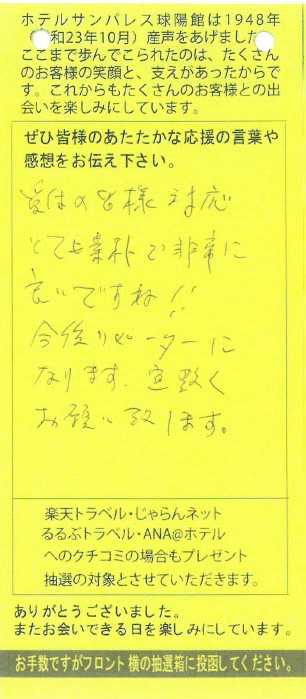 ホテルサンパレス球陽館は1948年
和23年10月）産声をあげました
ここまで歩んでこられたのは、たくさん
のお客様の笑顔と、支えがあったからで
す。これからもたくさんのお客様との出
会いを楽しみにしています。
ぜひ皆様のあたたかな応援の言葉や
感想をお伝え下さい。
受付の皆様対応
とても素朴で非常に
良いですね!!
今後リピーターに
なります。宜敷く
お願い致します。
楽天トラベル・じゃらんネット
るるぶトラベル・ANA@ホテル
へのクチコミの場合もプレゼント
抽選の対象とさせていただきます。
ありがとうございました。
またお会いできる日を楽しみにしています。
お手数ですがフロント横の抽選箱に投函してください。